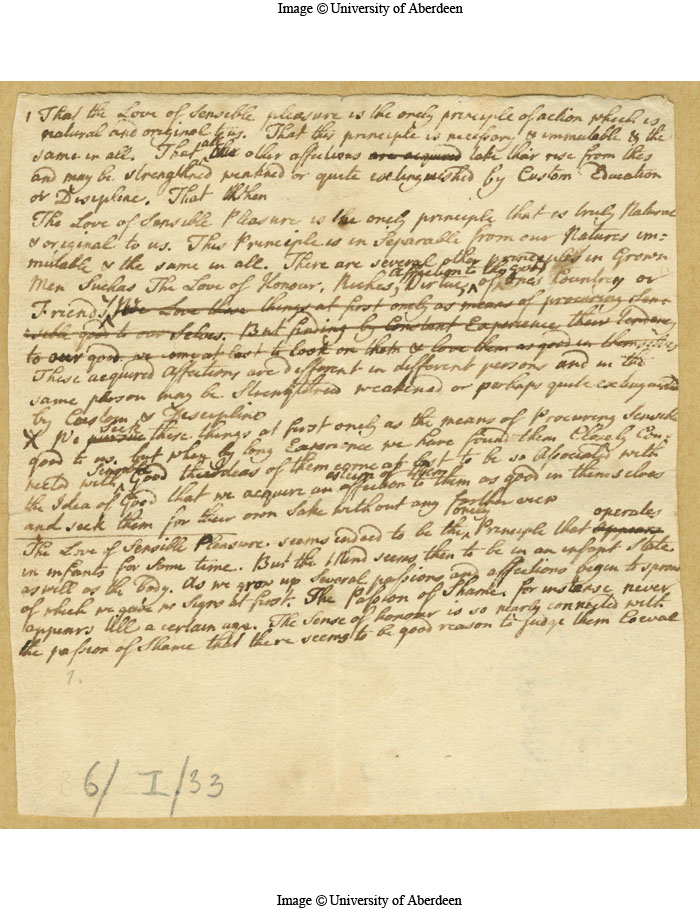 Image © University of Aberdeen
1 That the Love of Sensible pleasure is the onely principle of action which is
natural and original to us. That this principle is necessary & immutable & the
same in all. That all other affections are acquired take their rise from this
and may be strengthned weakned or quite extinguished by Custom Education
or Discipline. That When
The Love of Sensible Pleasure is the onely principle that is truly Natural
& original to us. This Principle is in Separable from our Natures im-
mutable & the same in all. There are several other principles in Grown
Men Such as The Love of Honour, Riches, Virtue, affection to the good of ones Countrey or
Friends X We Love these things at first onely as means of procuring Sen-
sible good to our Selves. But finding by Constant Experience their tendency
to our good we come at last to look on them & love them as good in themselves
These acquired Affections are different in different persons and in the
same person may be Strengthned weakened or perhaps quite extinguished
by Custom & Discipline
X We pursue seek these things at first onely as the means of Procuring Sensible
good to us. but when by long Experience we have found them Closely Con-
nected with Sensible Good the Ideas of them come at last to be so Associated with
the Idea of Good that we acquire an affection to them as good in themselves
and seek them for their own Sake without any further view
The Love of Sensible Pleasure seems indeed to be the onely Principle that appears operates
in infants for some time. But the Mind seems then to be in an infant State
as well as the body. As we grow up several passions and affections begin to sprout
of which we gave no signs at first. The Passion of Shame for instance never
appears till a certain age. The Sense of honour is so nearly connected with
the passion of Shame that there seems to be good reason to judge them Coeval
1.
6/I/33
Image © University of Aberdeen